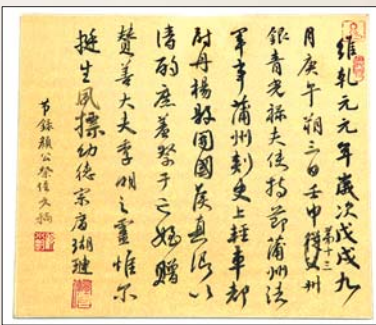 維乾元元年歲次戊戌九
月庚午朔三日壬申第十三從父州
銀青光祿夫使持節蒲州諸
軍事蒲州刺史上輕車都
尉丹楊縣開國侯真卿以
清酌庶羞祭于亡姪贈
贊善大夫季明之靈惟爾
挺生夙標幼德宗廟瑚璉
节錄顏公祭侄文稿